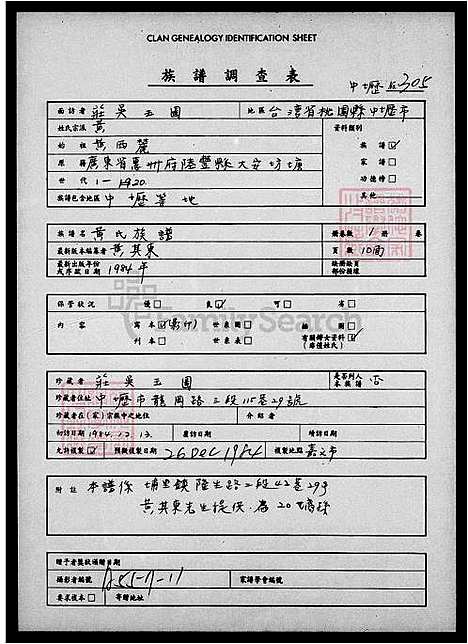 CLAN GENEALOGY IDENTIFICATION SHEET
族譜調查表
中壢 305
面訪者 莊吳玉圓 地區 台灣省桃園縣中壢市
姓氏宗派 黃 資料類別
始祖 黃西麓 族譜☑
原籍 廣東省惠州府陸豐縣大安坊塘 家譜□
世代 1-1920 功德榜□
族譜包含地區 中壢等地 其他
族譜名 黃氏族譜 冊卷數 1 冊 卷
最新版本編纂者 黃其東 頁數 10面
最新出版年份或序跋日期 1984年 缺損缺頁部份摘錄
保管狀況 優□ 良☑ 可□ 劣□
內容 寫本☑(影印) 世系圖□ 插圖□
刊本□ 世系表□ 有關婦女資料☑(原從姓氏)
FamilySearch
珍藏者 莊吳玉圓 是否列入本族譜 否
珍藏者住址 中壢市龍岡路三段115巷29號
珍藏者在(家)宗族中之地位 介紹者
初訪日期 1984.12.13. 覆訪日期 續訪日期
允許複製☑ 預擬複製日期 26 Dec 1984 複製地點 嘉義市
附註 本譜係埔里鎮隆生路二段42巷29号
黃其東先生提供.為20
贈予者獎狀頒贈日期
攝影者編號 A55-11-11 家譜學會編號
要求複本□ 寄贈地址